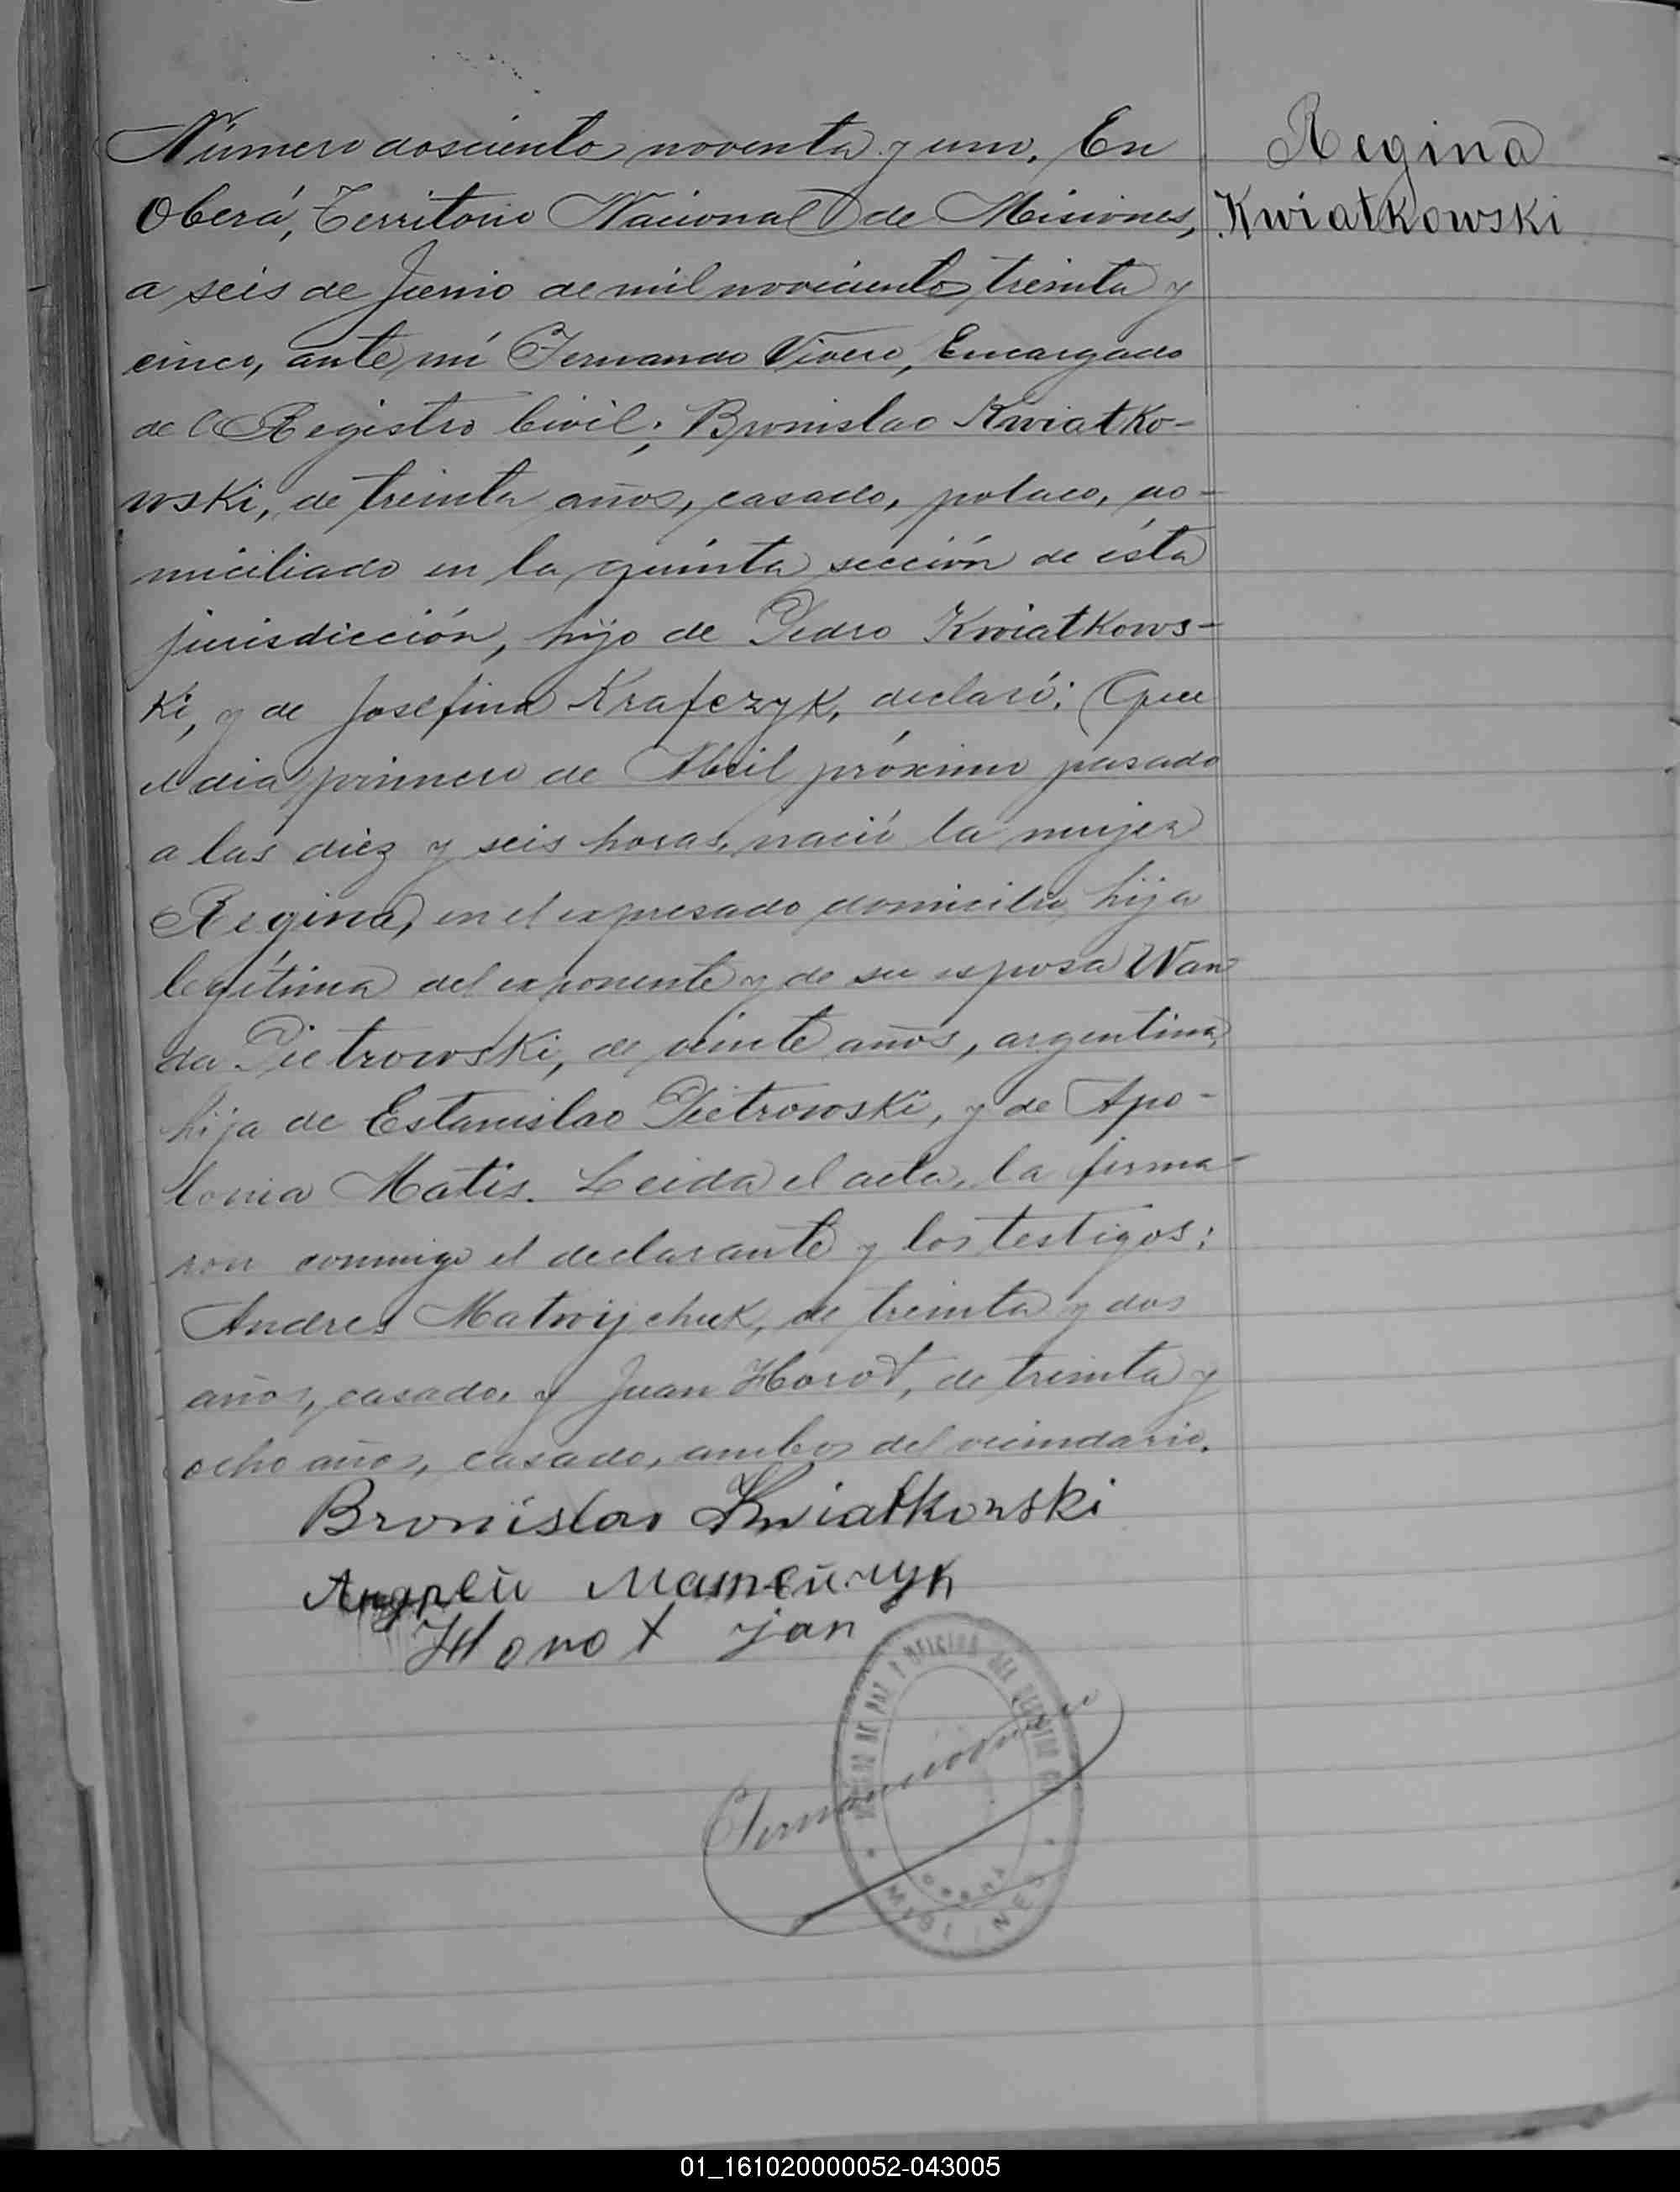 Número dosciento noventa y uno. En
Oberá, Territorio Nacional de Misiones,
a seis de Junio de mil noviciento treinta y
cinco, ante mí Fernando Vivero, Encargado
del Registro Civil; Bronislao Kwiatko-
wski, de treinta años, casado, polaco, do-
miciliado en la quinta sección de ésta
jurisdicción, hijo de Pedro Kwiatkows-
ki, y de Josefina Krafczyk, declaró: Que
el dia primero de Abril próximo pasado
a las diez y seis horas, nació la mujer
Regina, en el expresado domicilio, hija
legítima del exponente y de su esposa Wan
da Pietrowski, de veinte años, argentina,
hija de Estanislao Pietrowski, y de Apo-
lonia Matis. Leida el acta, la firma-
ron conmigo el declarante y los testigos:
Andres Matwijchuk, de treinta y dos
años, casado, y Juan Horot, de treinta y
ocho años, casado, ambos del vecindario.
Regina
Kwiatkowski
Bronislao Kwiatkowski
Андрей
Horot Jan
JUZGADO DE PAZ Y OFICINA DEL REGISTRO
OBERA
MISIONES
01_161020000052-043005